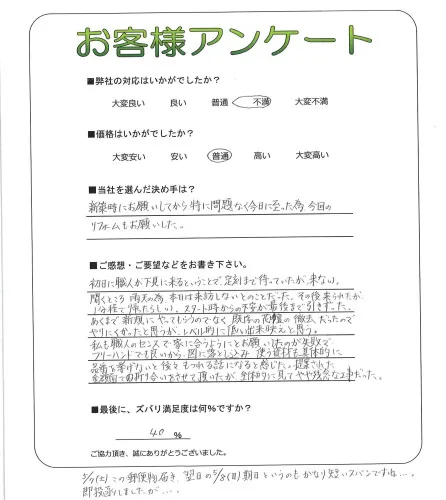 お客様アンケート
■弊社の対応はいかがでしたか?
大変良い 良い 普通 不満 大変不満
■価格はいかがでしたか?
大変安い 安い 普通 高い 大変高い
■当社を選んだ決め手は?
新築時にお願いしてから特に問題なく今日に至った為、今回の
リフォームもお願いした。
■ご感想・ご要望などをお書き下さい。
初日に職人が下見に来るということで、定刻まで待っていたが、来ない。
聞くところ、雨天の為、本日は来訪しないとのことだった。その後来られたが、
1分程で帰たらしい。スタート時からの不安が最後まで引きずった。
あくまで新規にやってもらうのでなく、既存の花壇の撤去だったので
やりにくかったと思うが、レベル的に低い出来映えと思う。
私も職人のセンスで家に合うようにとお願いしたのが失敗で
フリーハンドでも良いから、図に落としこみ、使う資材も具体的に
品番を挙げないと後々もつれる話になると感じた。提案された
金額面での折り合いをさせて頂いたが、全体的に見てやや残念な工事だった。
■最後に、ズバリ満足度は何%ですか?
40 %
ご協力頂き、誠にありがとうございました。
5/7(土)この郵便物届き、翌日の5/8(日)期日というのもかなり短いスパンですね…。
即投函しましたが…。